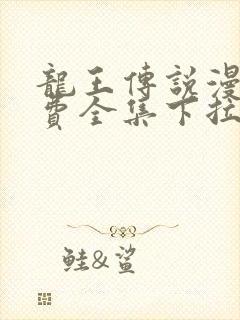 龍王傳說漫
費全集下拉
鮭&鯊